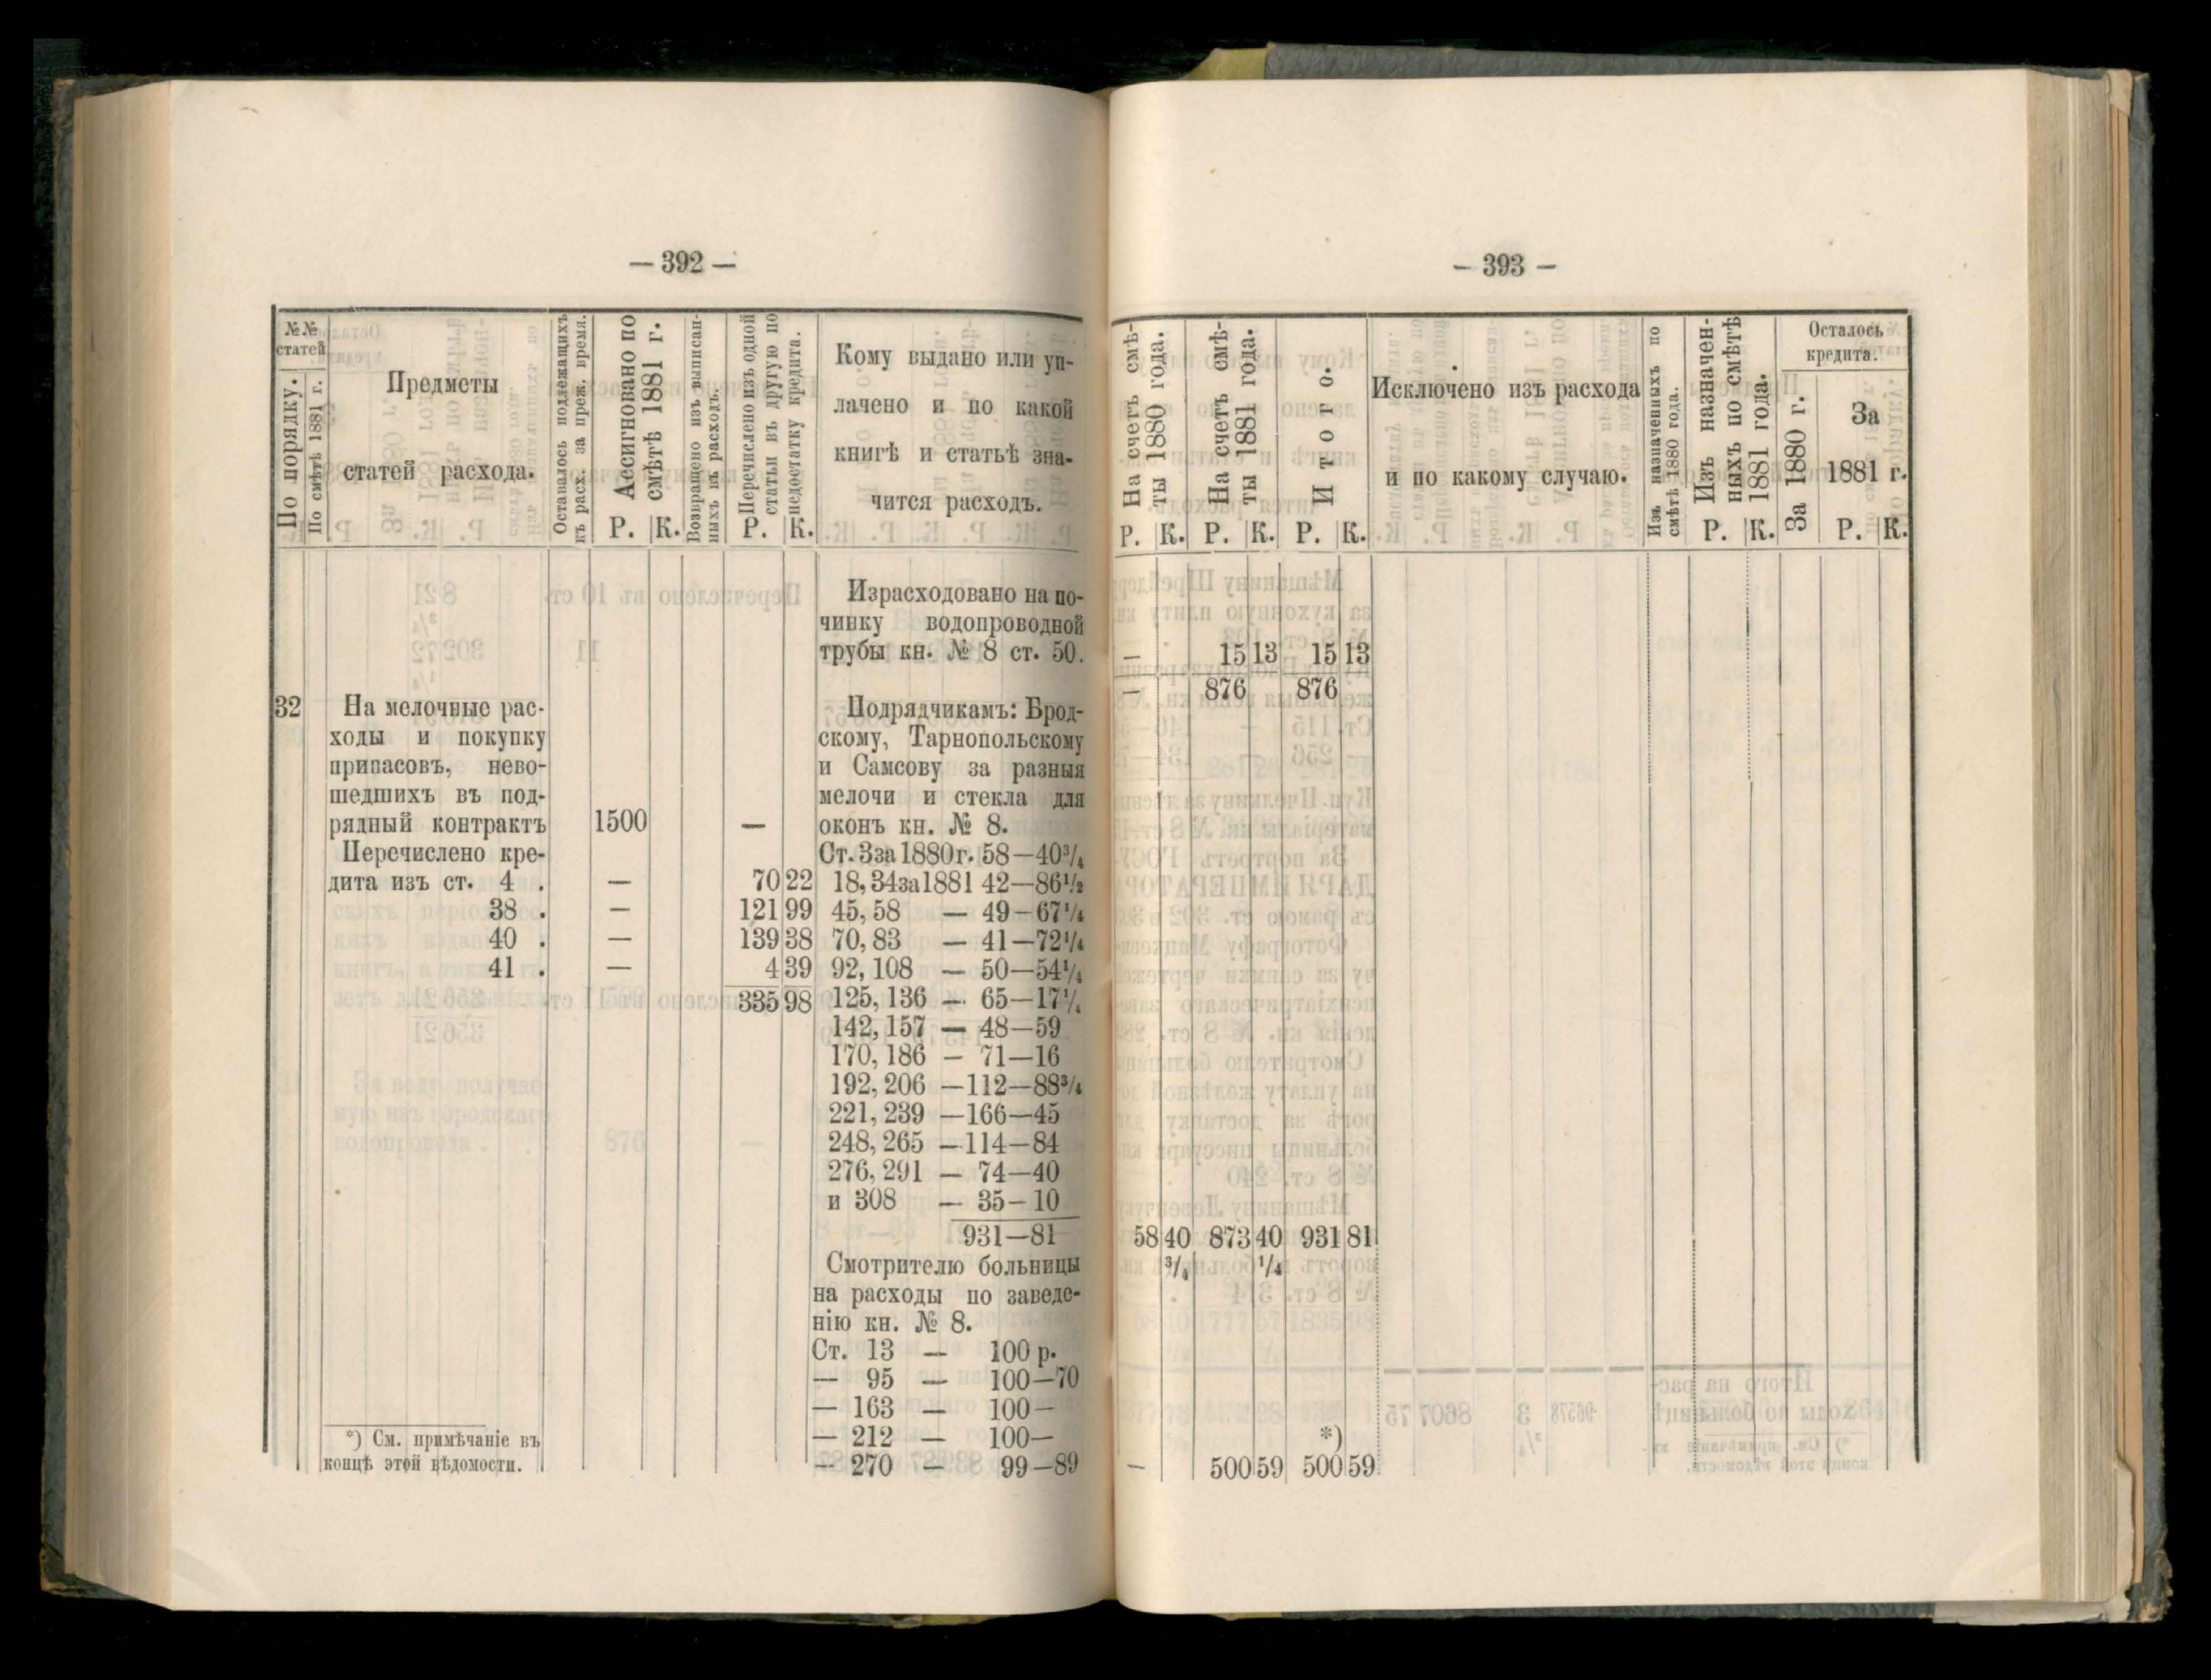 — 392 —
№№ статей
По порядку.
По смѣтѣ 1881 г.
Предметы
статей расхода.
Оставалось подлежащихъ
къ расх. за преж. время.
Ассигновано по
смѣтѣ 1881 г.
Р. К.
Возвращено изъ выписан-
ныхъ въ расходъ.
Перечислено изъ одной
статьи въ другую по
недостатку кредита.
Р. К.
Кому выдано или уп-
лачено и по какой
книгѣ и статьѣ зна-
чится расходъ.
Израсходовано на по-
чинку водопроводной
трубы кн. № 8 ст. 50.
32 На мелочные рас-
ходы и покупку
припасовъ, нево-
шедшихъ въ под-
рядный контрактъ 1500 —
Перечислено кре-
дита изъ ст. 4 . — 70 22
38 . — 121 99
40 . — 139 38
41 . — 4 39
335 98
Подрядчикамъ: Брод-
скому, Тарнопольскому
и Самсову за разныя
мелочи и стекла для
оконъ кн. № 8.
Ст. 3 за 1880 г. 58—40³/₄
18, 34 за 1881 42—86¹/₂
45, 58 — 49—67¹/₄
70, 83 — 41—72¹/₄
92, 108 — 50—54¹/₄
125, 136 — 65—17¹/₄
142, 157 — 48—59
170, 186 — 71—16
192, 206 —112—88³/₄
221, 239 —166—45
248, 265 —114—84
276, 291 — 74—40
и 308 — 35—10
931—81
Смотрителю больницы
на расходы по заведе-
нію кн. № 8.
Ст. 13 — 100 р.
— 95 — 100—70
— 163 — 100—
— 212 — 100—
— 270 — 99—89
*) См. примѣчаніе въ
концѣ этой вѣдомости.
— 393 —
На счетъ смѣ-
ты 1880 года.
Р. К.
На счетъ смѣ-
ты 1881 года.
Р. К.
Итого.
Р. К.
Исключено изъ расхода
и по какому случаю.
Изъ назначенныхъ по
смѣтѣ 1880 года.
Изъ назначен-
ныхъ по смѣтѣ
1881 года.
Р. К.
Осталось
кредита.
За 1880 г.
За
1881 г.
Р. К.
— 15 13 15 13
— 876 876
58 40 873 40 931 81
³/₄ ¹/₄
*)
— 500 59 500 59